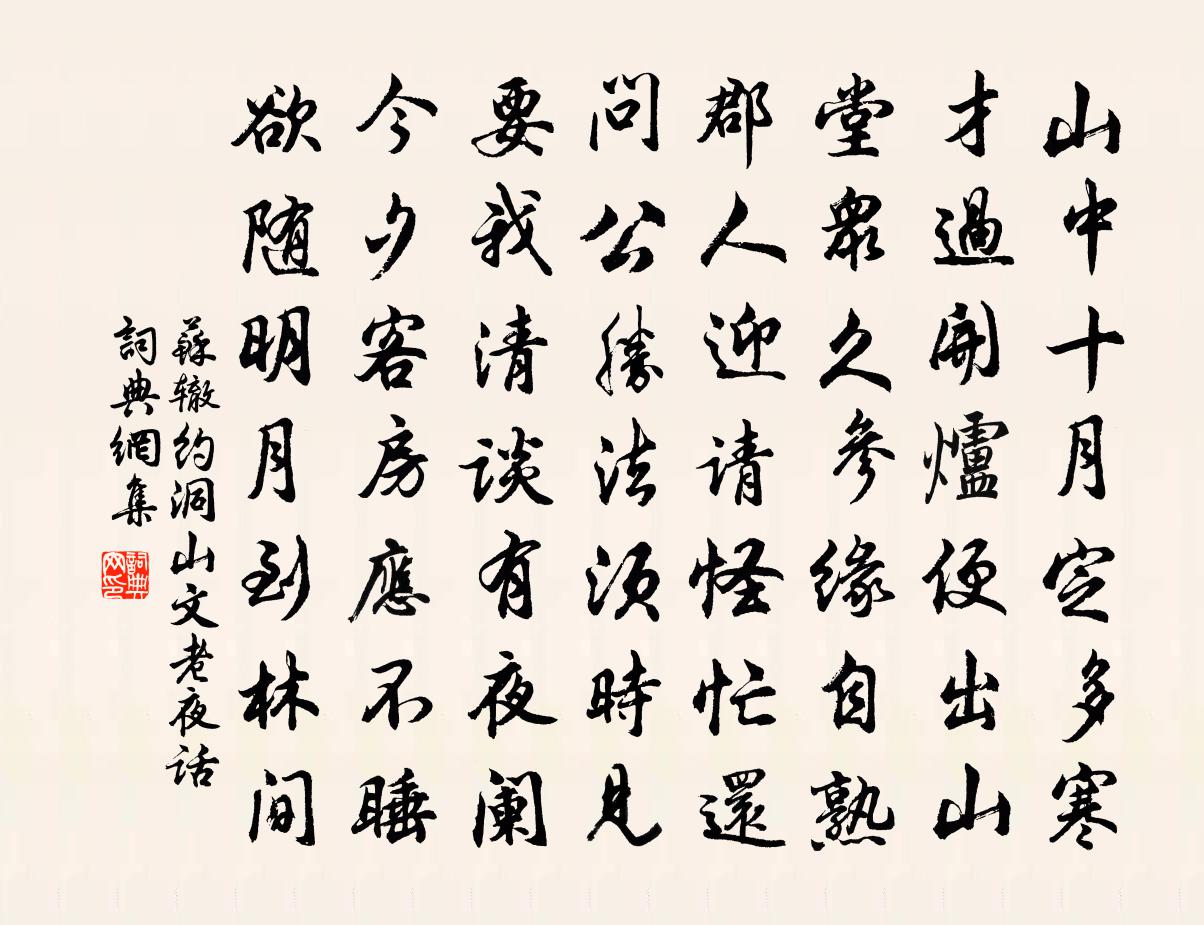 山中十月定多寒
才過開爐便出山
堂眾久參緣自熟
郡人迎请怪忙還
問公勝法須時見
要我清談有夜阑
今夕客房應不睡
欲随明月到林間
蘇辙約洞山文老夜话
詞典網集
詞典网印